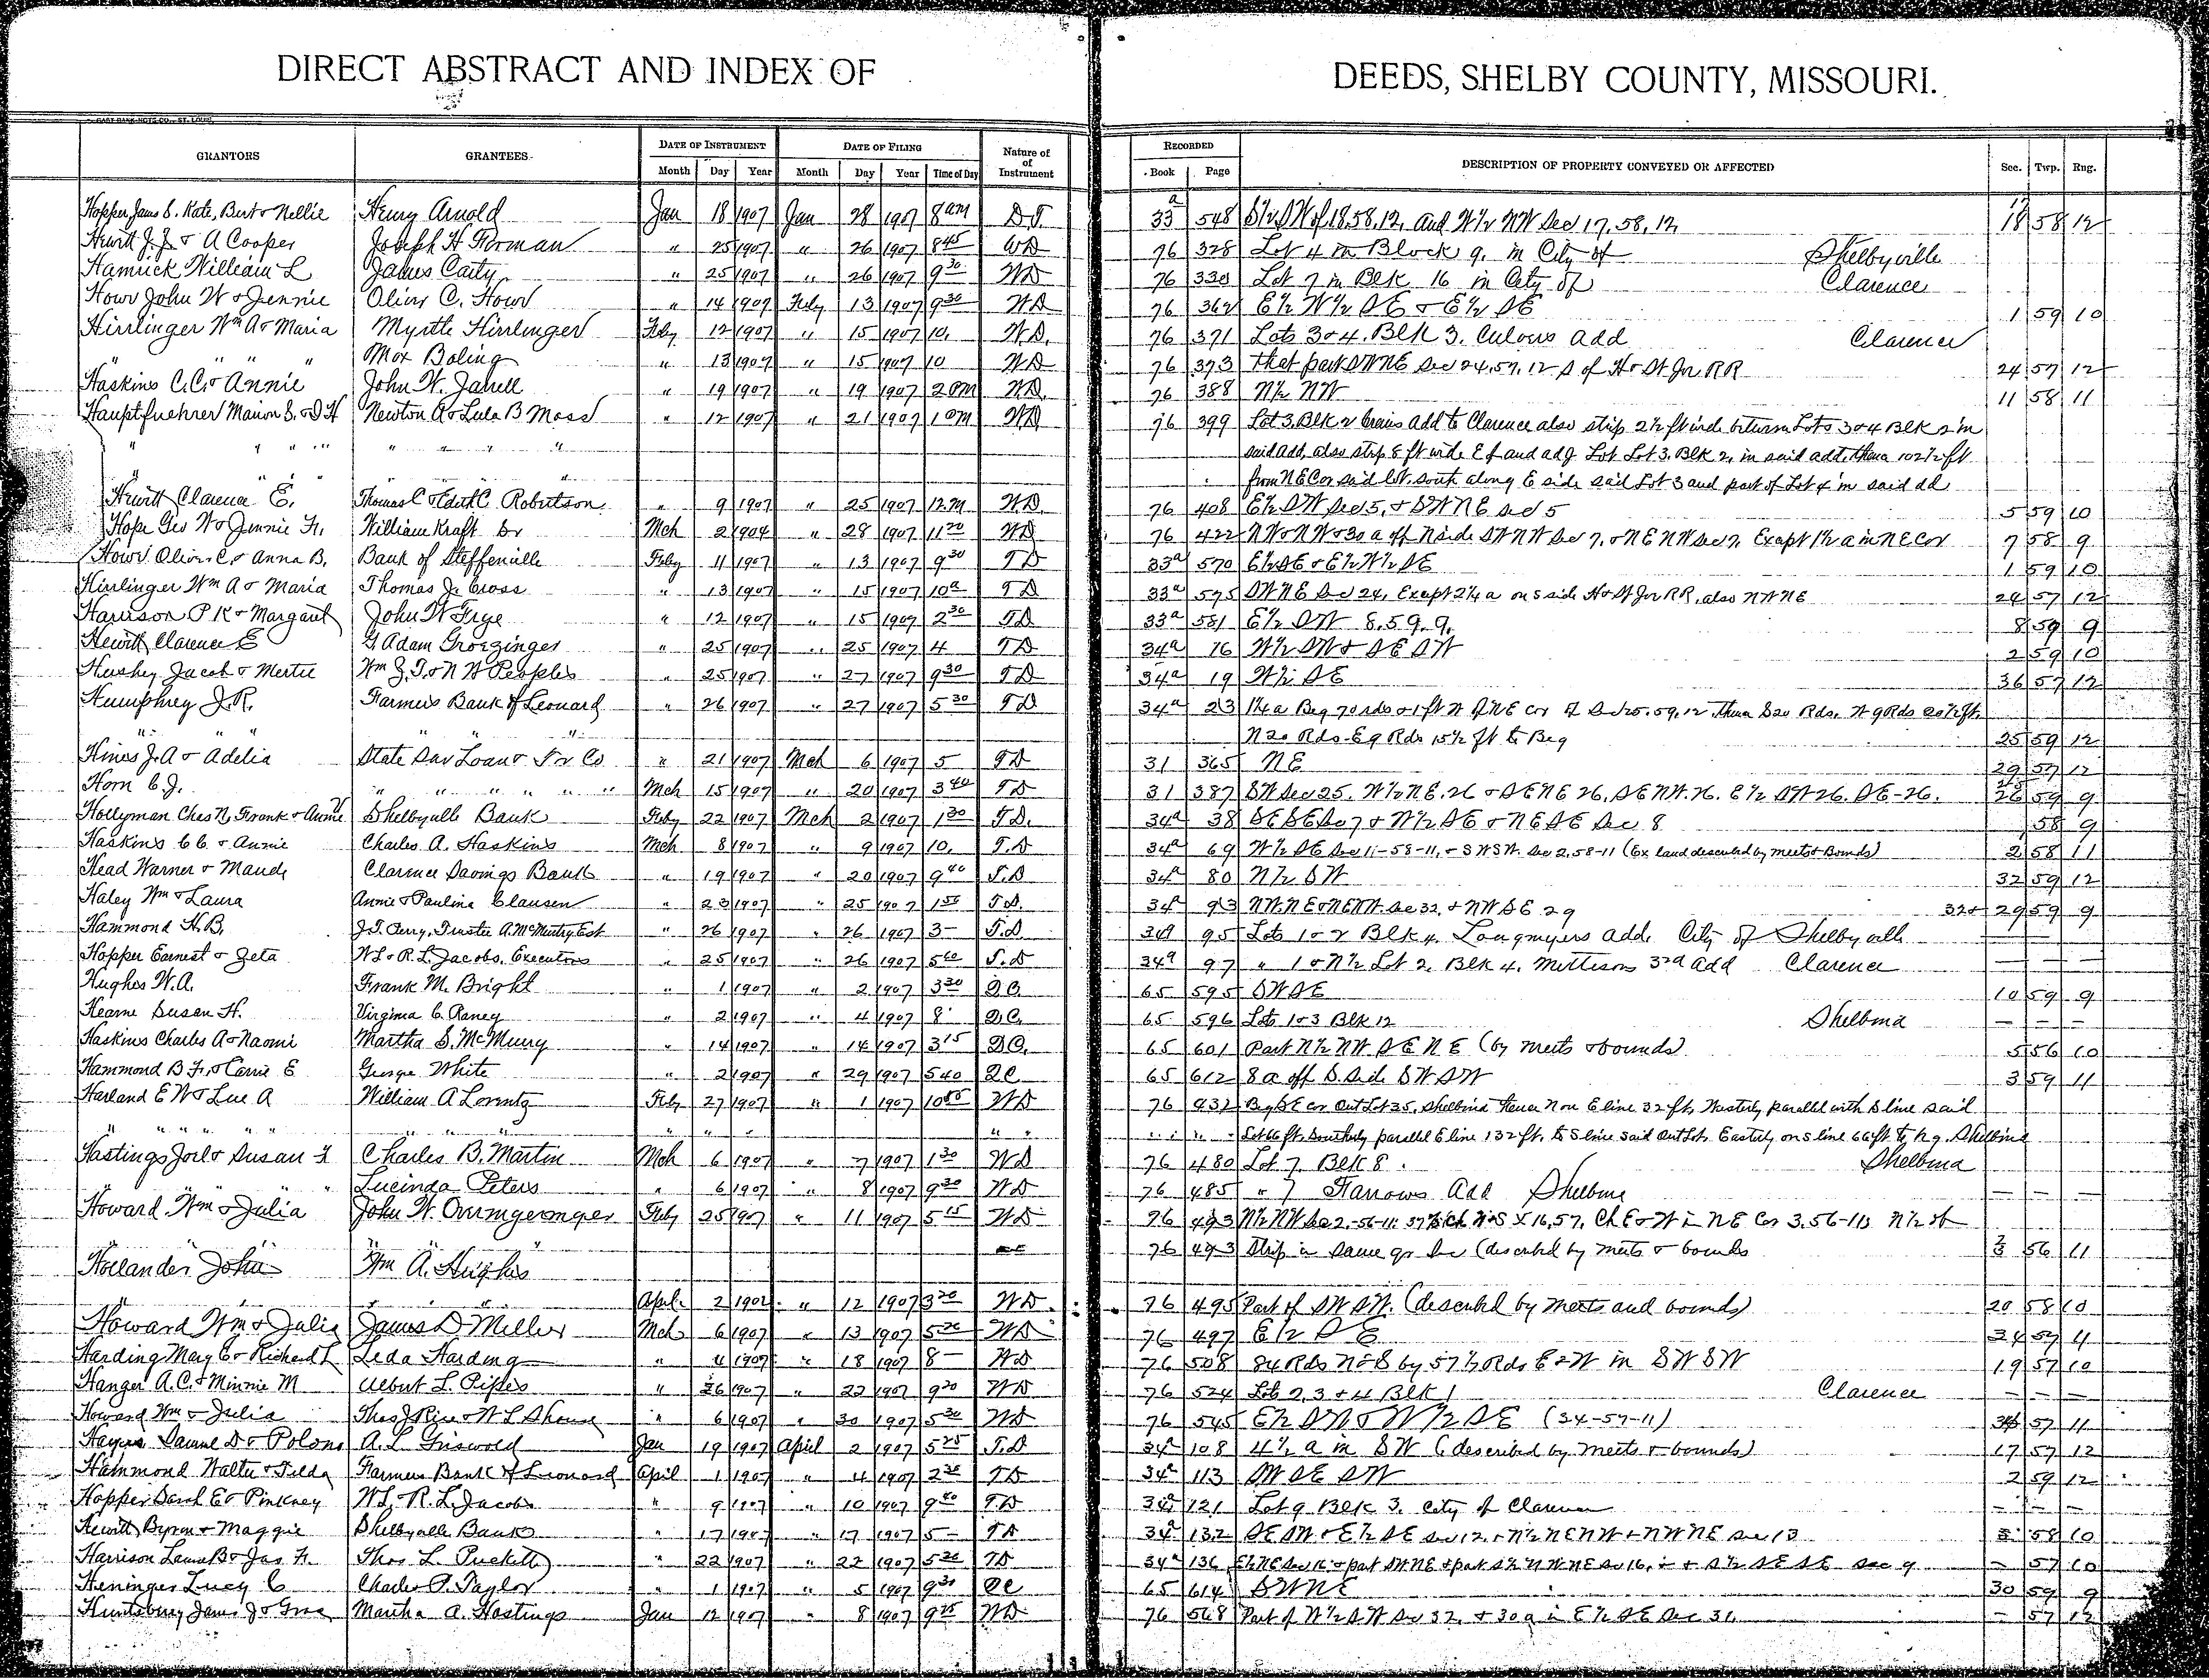 DIRECT ABSTRACT AND INDEX OF DEEDS, SHELBY COUNTY, MISSOURI.
GRANTORS GRANTEES DATE OF INSTRUMENT DATE OF FILING Nature of of Instrument RECORDED DESCRIPTION OF PROPERTY CONVEYED OR AFFECTED Sec. Twp. Rng.
Month Day Year Month Day Year Time of Day Book Page
Hopper, Jams S. Kate, Bert & Nellie Henry Arnold Jan 18 1907 Jan 28 1907 8 am D.T. 33a 548 S½ SW of 18.58.12, and W½ NW Sec 17, 58, 12 17 18 58 12
Hewitt J.J. & A Cooper Joseph H Forman " 25 1907 " 26 1907 8 45 WD 76 328 Lot 4 in Block 9. in City of Shelbyville
Hamrick William L James Carty " 25 1907 " 26 1907 9 30 WD 76 330 Lot 7 in Blk 16 in City of Clarence
Howe John W & Jennie Oliver C. Howe " 14 1907 Feby 13 1907 9 30 WD 76 362 E½ W½ SE & E½ SE 1 59 10
Hirrlinger Wm A & Maria Myrtle Hirrlinger Feby 12 1907 " 15 1907 10. WD. 76 371 Lots 3 & 4. Blk 3. Add Clarence
" " " " Max Boling " 13 1907 " 15 1907 10 WD 76 373 that part SWNE Sec 24.57.12 S of H & St Jo RR 24 57 12
Haskins C.C. & Annie John W. Janell " 19 1907 " 19 1907 2 PM WD. 76 388 N½ NW 11 58 11
Hauptfuehrer Marion S. & D H Newton A & Lula B Moss " 12 1907 " 21 1907 1 PM WD 76 399 Lot 3. Blk 2 Crains Add to Clarence also strip 2½ ft wide between Lots 3 & 4 Blk 2 in
" " " " " " " " said add, also strip 8 ft wide E of and adj Lot Lot 3. Blk 2, in said add. thence 102½ ft
" " " from NE Cor said lot. south along E side said Lot 3 and part of Lot 4 in said ad
Hewitt Clarence E. Thomas C & Edith C Robertson " 9 1907 " 25 1907 12 M WD. 76 408 E½ SW Sec 5, & SWNE Sec 5 5 59 10
Hope Geo W & Jennie H. William Kraft Sr Mch 2 1904 " 28 1907 11 20 WD 76 422 NW & NW & 30 a off N side SWNW Sec 7. & NENW Sec 7. Except 1½ a in NE Cor 7 58 9
Howe Oliver C. & Anna B. Bank of Steffenville Feby 11 1907 " 13 1907 9 30 TD 33a 570 E½ SE & E½ W½ SE 1 59 10
Hirrlinger Wm A & Maria Thomas J. Cross " 13 1907 " 15 1907 10 a TD 33a 575 SWNE Sec 24. Except 2¼ a on S side H & St Jo RR, also NWNE 24 57 12
Harrison P K & Margaret John W Frye " 12 1907 " 15 1907 2 30 TD 33a 581 E½ SW 8.59.9. 8 59 9
Hewitt Clarence E G Adam Groezinger " 25 1907 " 25 1907 4 TD 34a 16 W½ SW & SESW 2 59 10
Hushey Jacob & Mertie Wm J. T. & N W Peoples " 25 1907 " 27 1907 9 30 TD 34a 19 W½ SE 36 57 12
Humphrey J.R. Farmers Bank of Leonard " 26 1907 " 27 1907 5 30 TD 34a 23 1¼ a Beg 70 rds & 1 ft W of NE cor of Sec 25.59.12, thence S 20 Rds. W 9 Rds 20½ ft.
" " " " " " N 20 Rds. E 9 Rds 15½ ft to Beg 25 59 12
Hines J.A & Adelia State Sav Loan & Tr Co " 21 1907 Mch 6 1907 5 TD 31 365 NE 29 57 12
Horn C.J. " " " " " " Mch 15 1907 " 20 1907 3 40 TD 31 387 SW Sec 25. W½ NE. 26 & SENE 26. SENW. 26. E½ SW 26. SE-26. 26 59 9
Hollyman Ches N, Frank & Annie Shelbyville Bank Feby 22 1907 Mch 2 1907 1 30 TD. 34a 38 SESE Sec 7 & W½ SE & NESE Sec 8 58 9
Haskins C C. & Annie Charles A. Haskins Mch 8 1907 " 9 1907 10. T.D 34a 69 W½ SE Sec 11-58-11, & SWSW. Sec 2, 58-11 (Ex land described by meets & Bounds) 2 58 11
Head Warner & Maude Clarence Savings Bank " 19 1907 " 20 1907 9 40 T.D 34a 80 N½ SW 32 59 12
Haley Wm & Laura Annie & Paulina Clausen " 23 1907 " 25 1907 1 50 T.D. 34a 93 NWNE & NENW. Sec 32, & NWSE 29 32 & 29 59 9
Hammond H.B. J.T. Perry, Trustee A. McMurtry Est " 26 1907 " 26 1907 3 - T.D 34a 95 Lots 1 & 2 Blk 4. Longmyers add. City of Shelbyville — — —
Hopper Earnest & Zeta W L & R. L. Jacobs. Executors " 25 1907 " 26 1907 5 00 T.D 34a 97 " 1 & N½ Lot 2. Blk 4. Mettisons 3rd Add Clarence — — —
Hughes W.A. Frank M. Bright " 1 1907 " 2 1907 3 30 Q.C. 65 595 SWSE 10 59 9
Hearne Susan H. Virginia C. Raney " 2 1907 " 4 1907 8 Q.C. 65 596 Lots 1 & 3 Blk 12 Shelbina — — —
Haskins Charles A & Naomi Martha S. McMurry " 14 1907 " 14 1907 3 15 Q.C. 65 601 Part N½ NW SENE (by meets & bounds) 5 56 10
Hammond B F. & Carrie E George White " 2 1907 " 29 1907 5 40 QC 65 612 8 a off S. Side SWSW 3 59 11
Harland E W & Lue A William A Lorentz Feby 27 1907 " 1 1907 10 05 WD 76 437 Beg SE cor Out Lot 35. Shelbina thence N on E line 32 ft. Westerly parallel with S line said
" " " " " " " " " " " " Lot 66 ft. Southerly parallel E line 132 ft. to S line said Out Lot. Easterly on S line 66 ft to beg. Shelbina
Hastings Joel & Susan F Charles B. Martin Mch 6 1907 " 7 1907 1 30 WD 76 480 Lot 7 Blk 8. Shelbina
" " " " Lucinda Peters " 6 1907 " 8 1907 9 30 WD 76 485 " 7 Farrows Add Shelbina — — —
Howard Wm & Julia John W. Feby 25 1907 " 11 1907 5 15 WD 76 493 N½ NW Sec 2.-56-11: N & S X 16.57. Ch E & W in NE Cor 3.56-11
" " " 76 493 Strip in same qr Sec (described by meets & bounds 2 3 56 11
Hollander John Wm A. Hughes
" " " April. 2 1902 " 12 1907 3 20 WD. 76 495 Part of SWSW. (described by meets and bounds) 20 58 10
Howard Wm & Julia James D Miller Mch 6 1907 " 13 1907 5 20 WD 76 497 E½ SE 34 57 11
Harding Mary E & Richard L Leda Harding " 11 1907 " 18 1907 8 — WD 76 508 84 Rds N & S by 57½ Rds E & W in SWSW 19 57 10
Hanger A.C. & Minnie M Albert L. Pipes " 26 1907 " 22 1907 9 20 WD 76 524 Lots 2, 3 & 4 Blk 1 Clarence — — —
Howard Wm & Julia Thos J Rice & W L Shouse " 6 1907 " 30 1907 5 30 WD 76 545 E½ SW & W½ SE (34-57-11) 34 57 11
Hayes Daniel D & Polona A. L. Griswold Jan 19 1907 April 2 1907 5 25 T.D 34a 108 4½ a in SW (described by meets & bounds) 17 57 12
Hammond Walter & Tilda Farmers Bank of Leonard April 1 1907 " 4 1907 2 30 TD 34a 113 SWSESW 2 59 12
Hopper Sarah E & Pinkney W L & R. L. Jacobs " 9 1907 " 10 1907 9 40 T.D 34a 121 Lot 9 Blk 3. City of Clarence — — —
Hewitt Byron & Maggie Shelbyville Bank " 17 1907 " 17 1907 5 — TD 34a 132 SESW & E½ SE Sec 12, & N½ NENW & NWNE Sec 13 58 10
Harrison Laura B & Jas H. Thos L. Puckett " 22 1907 " 22 1907 5 20 TD 34a 136 E½ NE Sec 16 & part SWNE & part S½ NWNE Sec 16, & S½ SESE Sec 9 — 57 10
Heninger Lucy C Charles P. Taylor " 1 1907 " 5 1907 9 30 QC 65 614 SWNE 30 59 9
Huntsberry James J & Martha A. Hastings Jan 12 1907 " 8 1907 9 25 WD 76 568 Part of W½ SW Sec 32, & 30 a in E½ SE Sec 31 — 57 12